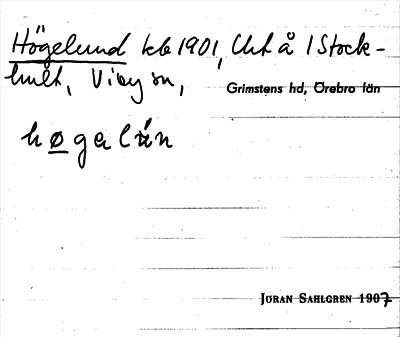 Högelund kb 1901, Lht å 1 Stock-
hult, Viby sn,
Grimstens hd, Örebro län
høgalún
JÖRAN SAHLGREN 1907